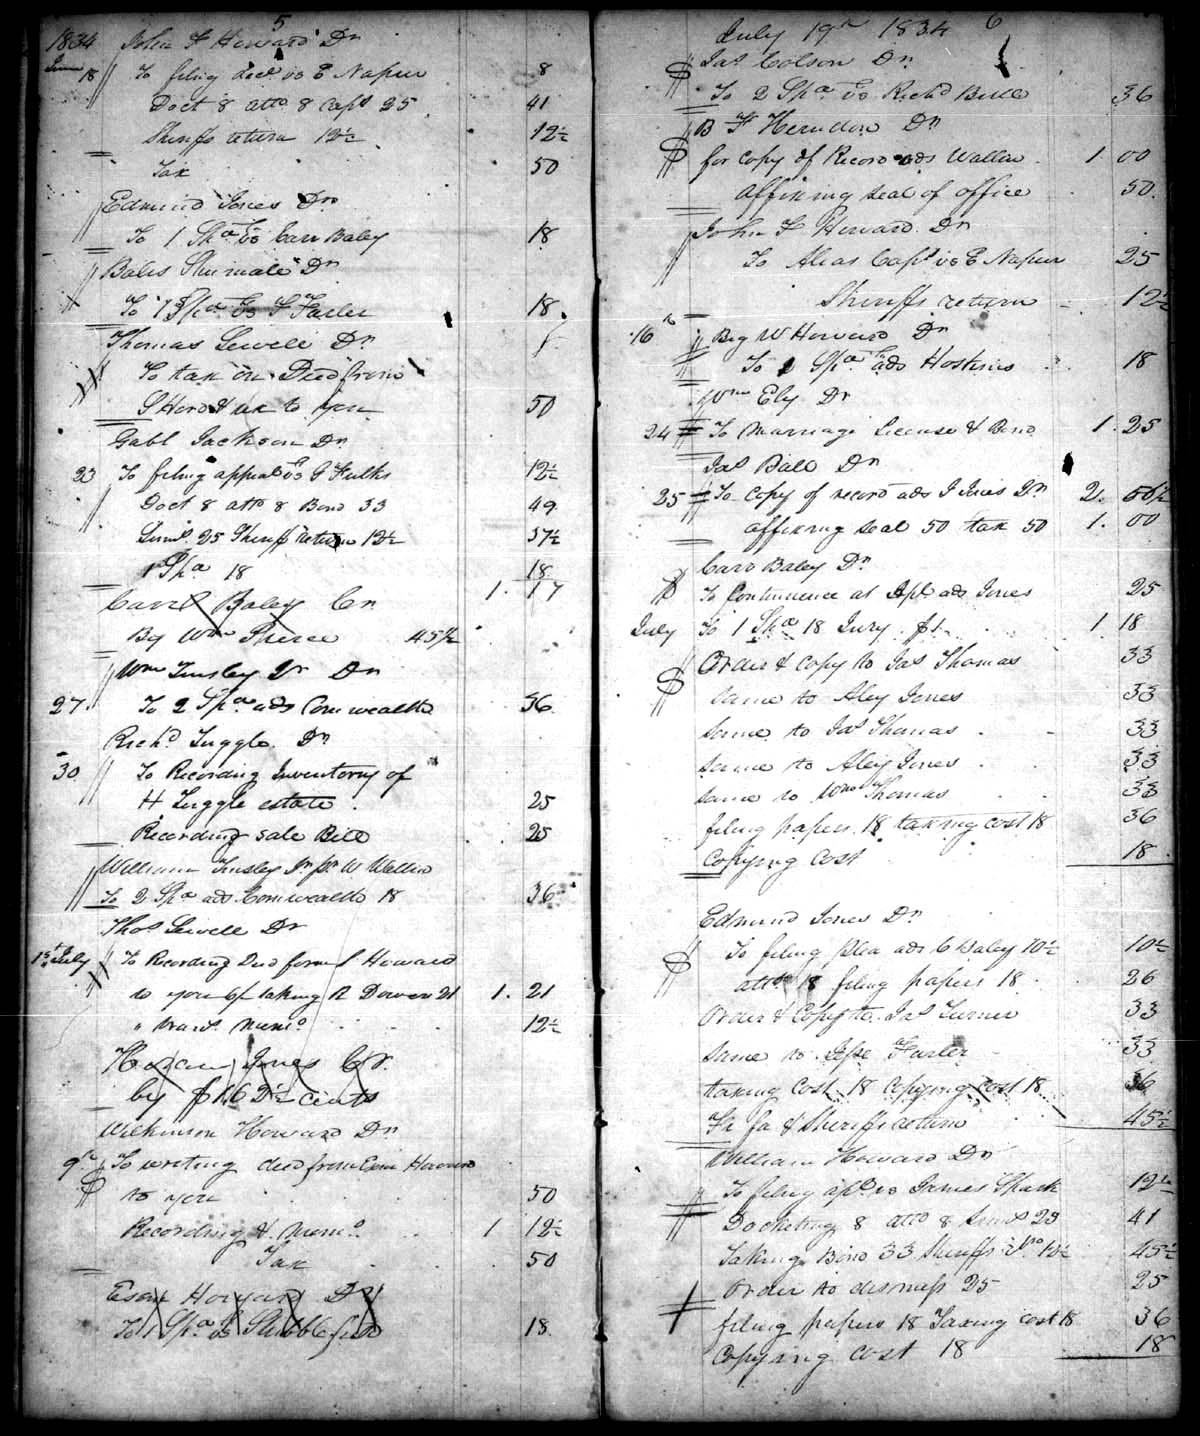 5
1834 John F Howard Dr
June 18 To filing decl vs E Napier 8
Doct 8 atto 8 caps 25 41
Sheriffs return 12½ 12½
Tax 50
Edmund Jones Dr
To 1 Spa vs Carr Baley 18
Bales Shumate Dr
To 1 Spa vs F Farler 18
Thomas Sewell Dr
To tax on Deed from
S Howard to you 50
Gabl Jackson Dr
23 To filing appeal vs G Fulks 12½
Doct 8 atto 8 Bond 33 49
Sums 25 Sheriff return 12½ 37½
1 Spa 18 18
1. 17
Carr Baley Cr
By Wm Pierce 45½
Wm Tinsley Jr Dr
27 To 2 Spas ads Comwealth 36
Richd Tuggle Dr
30 To Recording Inventory of
H Tuggle estate 25
Recording sale Bill 25
William Tinsley Jr W Wallin
To 2 Spa ads Comwealth 18 36
Thos Sewell Dr
1st July To Recording Deed from S Howard
to you 6/ taking R Dower 21 1. 21
memo 12½
Hiram Jones Cr.
by $1.62½ cents
Wilkinson Howard Dr
9th To writing deed from Esau Howard
to you 50
Recording & memo 1 12½
Tax 50
Esau Howard Dr
To 1 Spa vs Stubblefield 18
July 19th 1834 6
Jas Colson Dr
To 2 Spa vs Richd Bull 36
B F Herndon Dr
for copy of Record ads Wallin 1. 00
affixing seal of office 50
John F Howard Dr
To Alias Caps vs E Napier 25
Sheriffs return 12½
16th Beg W Howard Dr
To 1 Spa ads Hoskins 18
Wm Ely Dr
24 To marriage License & Bond 1. 25
Jas Ball Dr
25 To copy of record ads J Jones Dr 2. 56½
affixing seal 50 tax 50 1. 00
Carr Baley Dr
To Continuence at Apl ads Jones 25
July To 1 Spa 18 Jury $1 1. 18
Order & copy to Jas Thomas 33
same to Aley Jones 33
same to Jas Thomas 33
same to Aley Jones 33
same to Wm Thomas 33
filing papers 18 taxing cost 18 36
Copying cost 18
Edmund Jones Dr
To filing plea ads C Baley 10½ 10½
atto 18 filing papers 18 26
Order & Copy to Jas Turner 33
same to Jesse Farler 33
taxing cost 18 copying cost 18 36
Fi fa & Sheriffs return 45½
William Howard Dr
To filing apl vs James Spark 12½
Docketing 8 atto 8 sums 25 41
Taking Bond 33 Sheriffs 12½ 45½
Order to dismiss 25 25
filing papers 18 Taxing cost 18 36
Copying cost 18 18